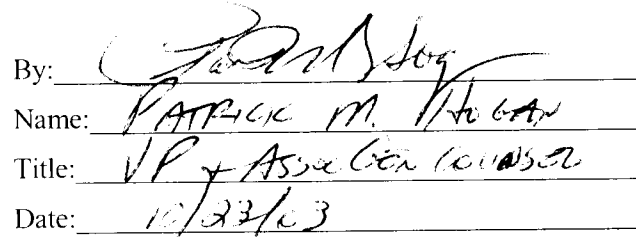 By:
Name: PATRICK M. HOGAN
Title: VP + ASSOC GEN COUNSEL
Date: 10/23/03